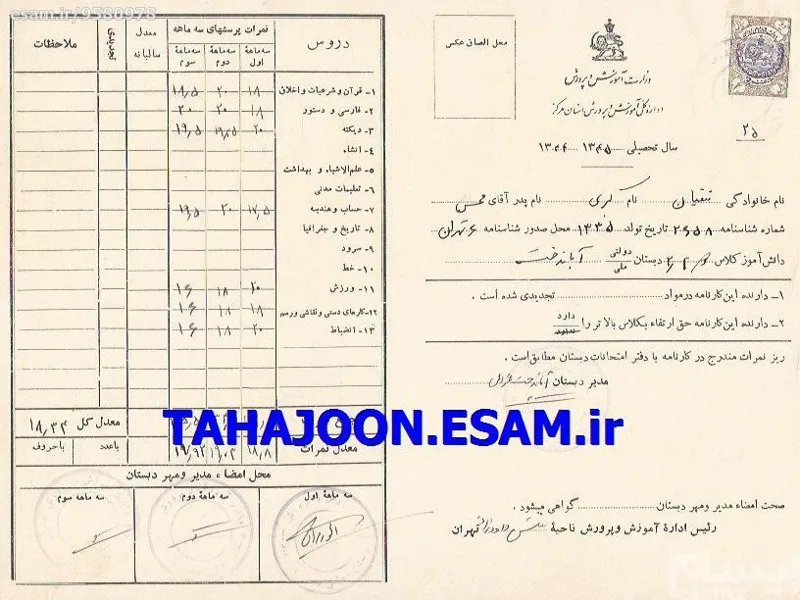 esam.ir/9580978
محل الصاق عکس
وزارت آموزش و پرورش
اداره کل آموزش و پرورش استان مرکز
۲۵
سال تحصیلی ۱۳۴۵ ۱۳۴۴
نام خانوادگی نام کبری نام پدر آقای محسن
شماره شناسنامه ۲۶۵۸ تاریخ تولد ۱۳۳۵ محل صدور شناسنامه ۶ تهران
دانش‌آموز کلاس دبستان دولتی ملی آباندخت
۱- دارنده این کارنامه در مواد تجدیدی شده است .
۲- دارنده این کارنامه حق ارتقاء بکلاس بالاتر را دارد ندارد
ریز نمرات مندرج در کارنامه با دفتر امتحانات دبستان مطابق است .
مدیر دبستان
صحت امضاء مدیر و مهر دبستان گواهی میشود .
رئیس ادارهٔ آموزش و پرورش ناحیهٔ تهران
دروس نمرات پرسشهای سه ماهه معدل سالیانه تجدیدی ملاحظات
سه ماههٔ اول سه ماههٔ دوم سه ماههٔ سوم
۱- قرآن و شرعیات و اخلاق ۱۸ ۲۰ ۱۸٫۵
۲- فارسی و دستور ۱۸ ۲۰ ۲۰
۳- دیکته ۲۰ ۱۹٫۷۵ ۱۹٫۵
۴- انشاء
۵- علم‌الاشیاء و بهداشت
۶- تعلیمات مدنی
۷- حساب و هندسه ۱۷٫۵ ۲۰ ۱۹٫۵
۸- تاریخ و جغرافیا
۹- سرود
۱۰- خط
۱۱- ورزش ۲۰ ۱۸ ۱۶
۱۲- کارهای دستی و نقاشی و رسم ۱۸ ۱۸ ۱۶
۱۳- انضباط ۲۰ ۱۸ ۱۶
معدل کل ۱۸٫۳۴
معدل نمرات ۱۸٫۸ باعدد باحروف
TAHAJOON.ESAM.ir
محل امضاء مدیر و مهر دبستان
سه ماههٔ اول سه ماههٔ دوم سه ماههٔ سوم